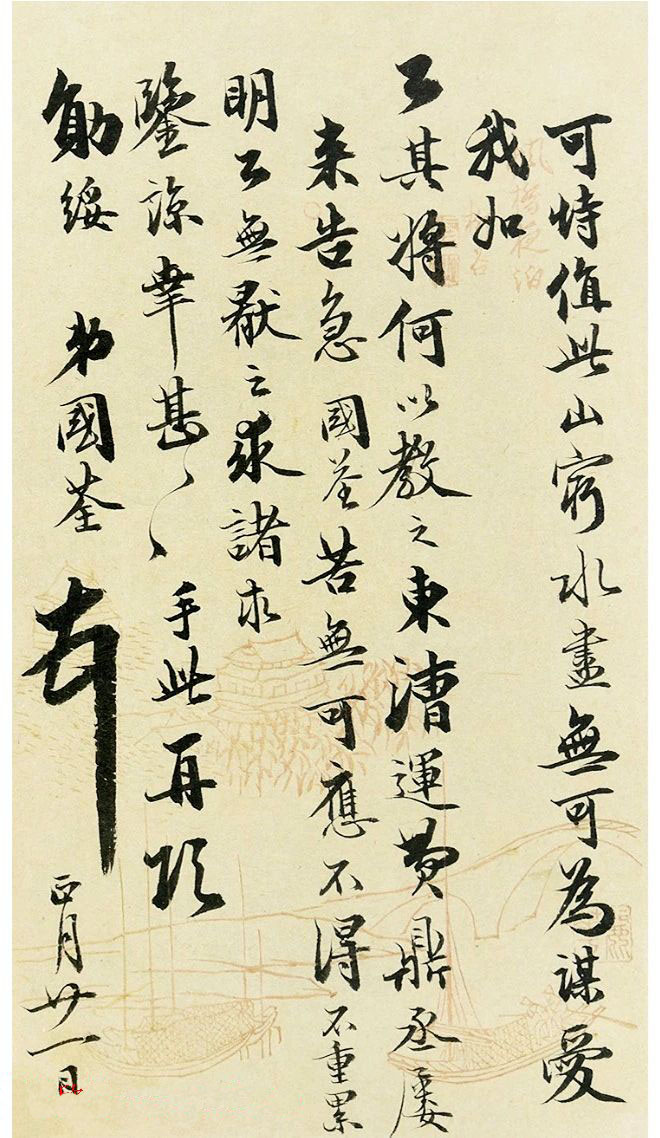 楓橋夜泊
可恃值此山窮水盡無可為謀愛
我如
公其將何以教之東漕運費鼎丞屢
来告急國荃苦無可應不得不重累
明公無厭之求諸求
鑒諒幸甚〻〻手此再頌
勛綏 弟國荃 正月廿一日